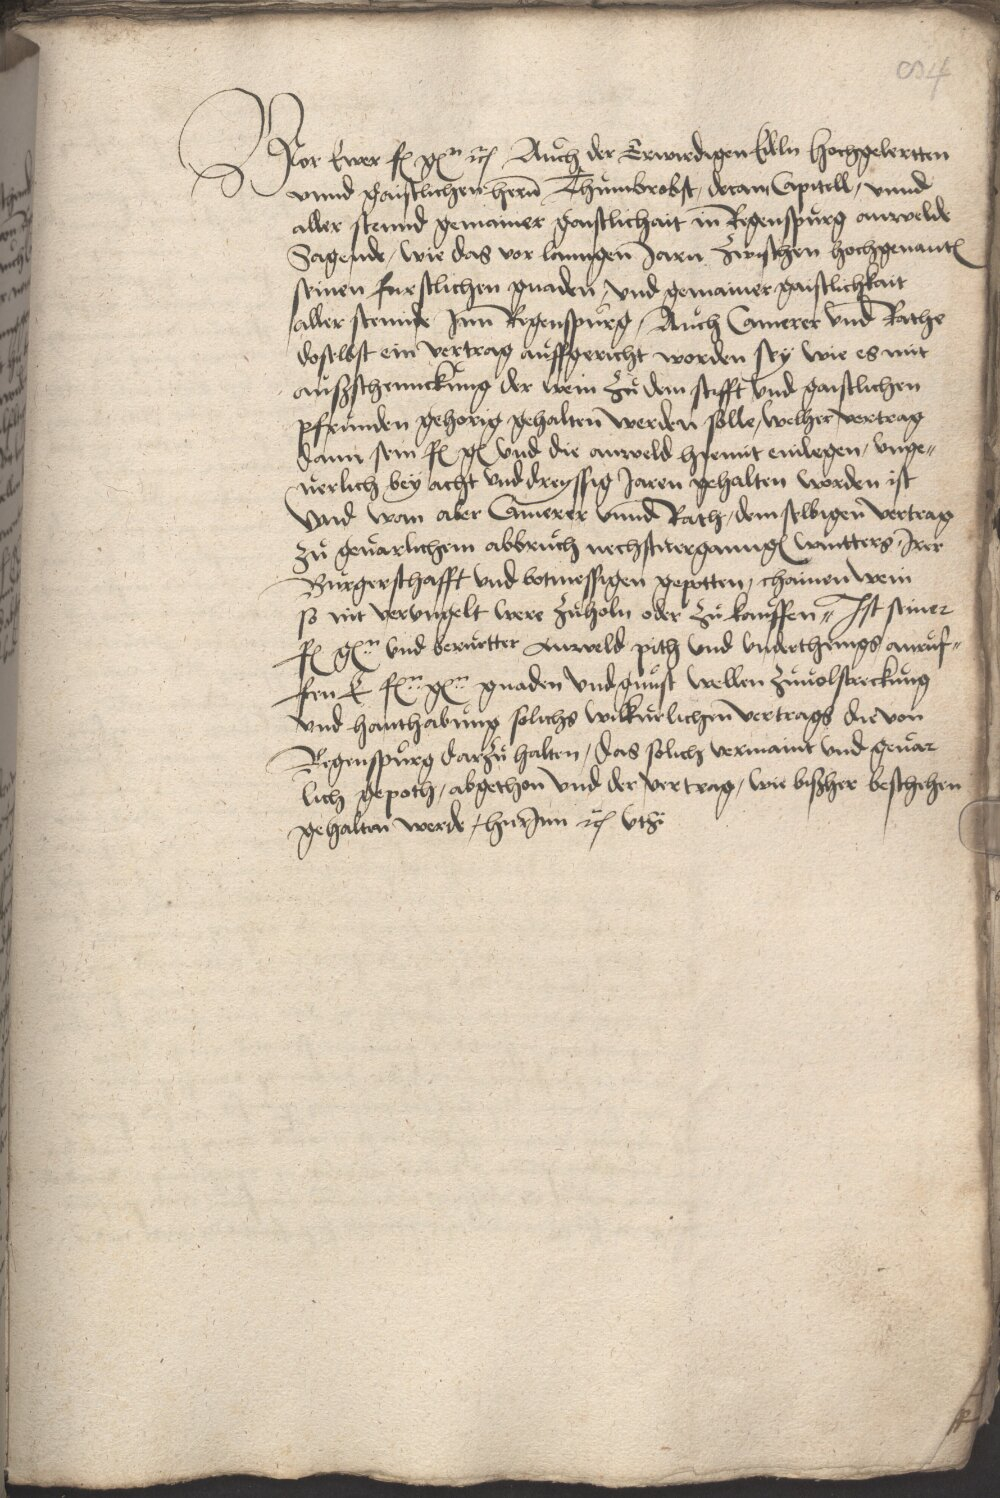 84
Vor Ewer f g n ꝛc Auch der Erwirdigen Edln Hochgelertten
vnnd gaistlichen herrn Thumbrobst, decan Capitell, vnnd
aller stennd gemainer gaistlichait in Regenspurg anwelde
Sagende, wie das vor lanngen Jarn zwischen hochgenant
seinen furstlichen gnaden, vnd gemainer gaistlichkait
aller stennde Jnn Regenspurg, Auch Camerer vnd Rathe
doselbst ein vertrag auffgericht worden sey wie es mit
außschennckung der wein zu dem stifft vnd gaistlichen
pfrunden gehorig gehalten werden solle, welher vertrag
dann sein f g vnd die anweld hiemit einlegen, vnge„
uerlich bey acht vnd dreyssig Jaren gehalten worden ist
Vnd wan aber Camerer vnnd Rath, dem selbigen vertrag
zu geuarlichem abbruch nechstuergangen wintters, Irer
Burgerschafft vnd botmessigen gepotten, chainen wein
so nit verungelt were zuholn oder zu kauffen„ Ist seiner
f g n vnd berurtter anweld pith vnd vnderthenigs anruf„
ffen E f n g n gnaden vnd gunst wellen zuuolstreckung
vnd hanthabung solichs wilkurlichen vertrags die von
Regenspurg darzu halten, das solich vermaint vnd geuar
lich gepoth, abgethon vnd der vertrag, wie bißher beschehen
gehalten werde, hierjnn ꝛc vtz